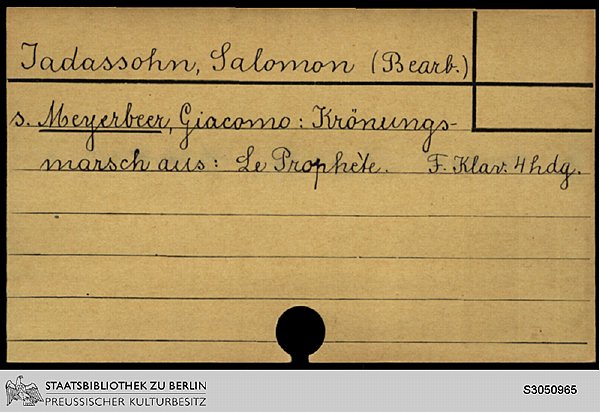 Jadassohn, Salomon (Bearb.)
s. Meyerbeer, Giacomo: Krönungs-
marsch aus: Le Prophète. F. Klav. 4hdg.
STAATSBIBLIOTHEK ZU BERLIN
PREUSSISCHER KULTURBESITZ
S3050965